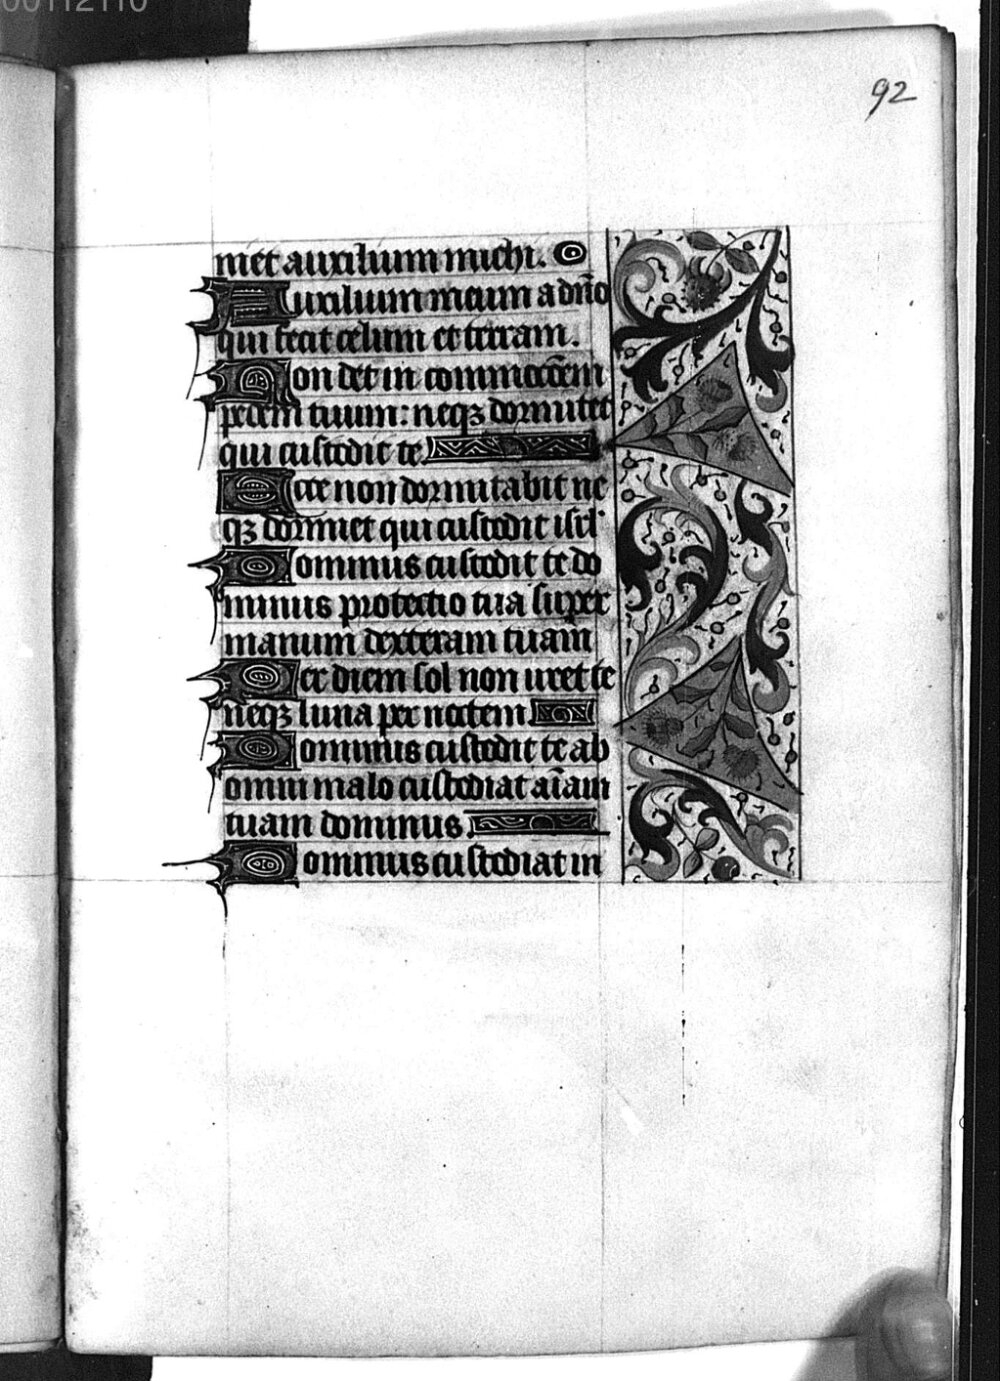 00112110
92
niet auxilium michi.
Auxilium meum a dño
qui fecit celum et terram.
Non det in commocōem
pedem tuum: neqꝫ dormitet
qui custodit te
Ecce non dormitabit ne
qꝫ dormiet qui custodit isrl'
Dominus custodit te do
minus protectio tua super
manum dexteram tuam
Per diem sol non uret te
neqꝫ luna per noctem
Dominus custodit te ab
omni malo custodiat aīam
tuam dominus
Dominus custodiat in